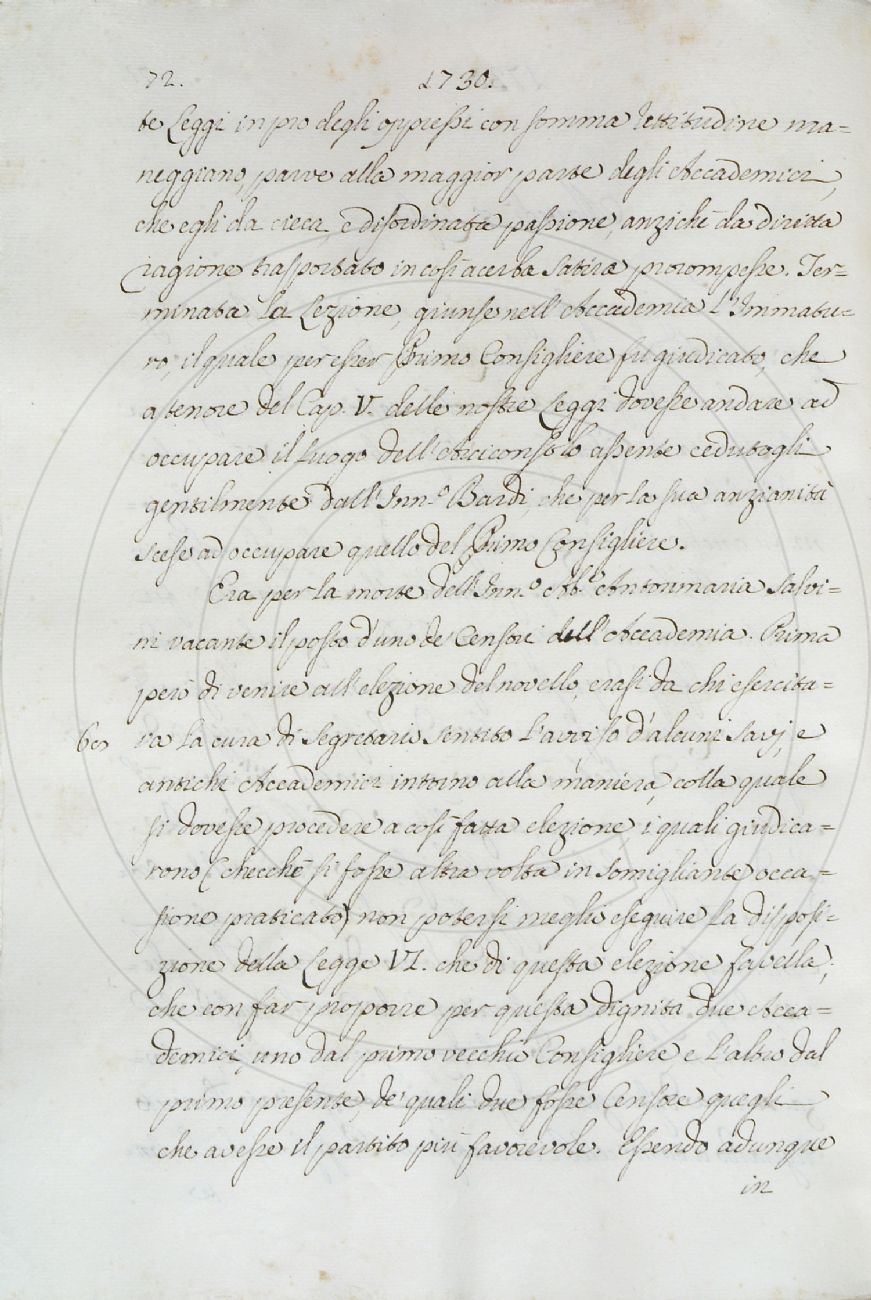 72.
1730.
te Leggi in pro degli oppressi con somma rettitudine ma=
neggiano, parve alla maggior parte degli Accademici,
che egli da cieca, e disordinata passione, anzichè da diritta
ragione trasportato in così acerba satira prorompesse. Ter=
minata la Lezione, giunse nell'Accademia l'Immatu=
ro, il quale per esser Primo Consigliere fu giudicato, che
a tenore del Cap. V. delle nostre Leggi dovesse andare ad
occupare il luogo dell'Arciconsolo assente cedutogli
gentilmente dall'Inn.º Bardi, che per la sua anzianità
scese ad occupare quello del Primo Consigliere.
Era per la morte dell'Inn.º Ab.e Antonmaria Salvi=
ni vacante il posto d'uno de' Censori dell'Accademia. Prima
però di venire all'elezione del novello, erasi da chi esercita=
va la cura di Segretario sentito l'avviso d'alcuni savj, e
antichi Accademici intorno alla maniera, colla quale
si dovesse procedere a così fatta elezione i quali giudica=
rono (checchè si fosse altra volta in somigliante occa=
sione praticato) non potersi meglio eseguire la disposi=
zione della Legge VI. che di questa elezione favella,
che con far proporre per questa dignità due Acca=
demici, uno dal primo vecchio Consigliere e l'altro dal
primo presente, de' quali due fosse Censore quegli
che avesse il partito più favorevole. Essendo adunque
in